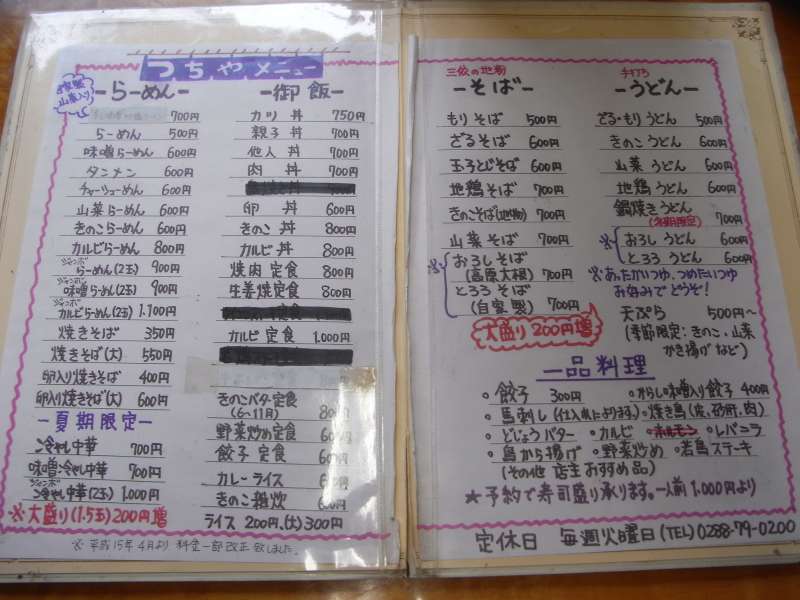 つちやメニュー
山菜入り
－らーめん－
700円
らーめん 500円
味噌らーめん 600円
タンメン 600円
チャーシューめん 600円
山菜らーめん 600円
きのこらーめん 600円
カルビらーめん 800円
ジャンボらーめん(2玉) 900円
ジャンボ味噌らーめん(2玉) 900円
ジャンボカルビらーめん(2玉) 1.100円
焼きそば 350円
焼きそば(大) 550円
卵入り焼きそば 400円
卵入り焼きそば(大) 600円
－夏期限定－
冷やし中華 700円
味噌冷やし中華 700円
ジャンボ冷やし中華(2玉) 1.000円
※大盛り(1.5玉)200円増
※平成15年4月より料金一部改正致しました。
－御飯－
カツ丼 750円
親子丼 700円
他人丼 700円
肉丼 700円
卵丼 600円
きのこ丼 800円
カルビ丼 800円
焼肉定食 800円
生姜焼定食 800円
カルビ定食 1.000円
きのこバター定食
(6～11月) 800円
野菜炒め定食 600円
餃子定食 600円
カレーライス 600円
きのこ雑炊 600円
ライス 200円、(大)300円
三依の地粉
－そば－
もりそば 500円
ざるそば 600円
玉子とじそば 600円
地鶏そば 700円
きのこそば(地物) 700円
山菜そば 700円
※おろしそば
(高原大根) 700円
とろろそば
(自家製) 700円
大盛り200円増
手打ち
－うどん－
ざる・もりうどん 500円
きのこうどん 600円
山菜うどん 600円
地鶏うどん 600円
鍋焼きうどん
(冬期限定) 700円
※おろしうどん 600円
とろろうどん 600円
※あったかいつゆ、つめたいつゆ
お好みでどうぞ！
天ぷら 500円～
(季節限定：きのこ、山菜
かき揚げなど)
一品料理
・餃子 300円 ・からし味噌入り餃子 400円
・馬刺し(仕入れによります。) ・焼き鳥(皮、砂肝、肉)
・どじょうバター ・カルビ ・ホルモン ・レバニラ
・鳥から揚げ ・野菜炒め ・若鳥ステーキ
(その他 店主おすすめ品)
★予約で寿司盛り承ります。一人前1.000円より
定休日 毎週火曜日 (TEL) 0288-79-0200